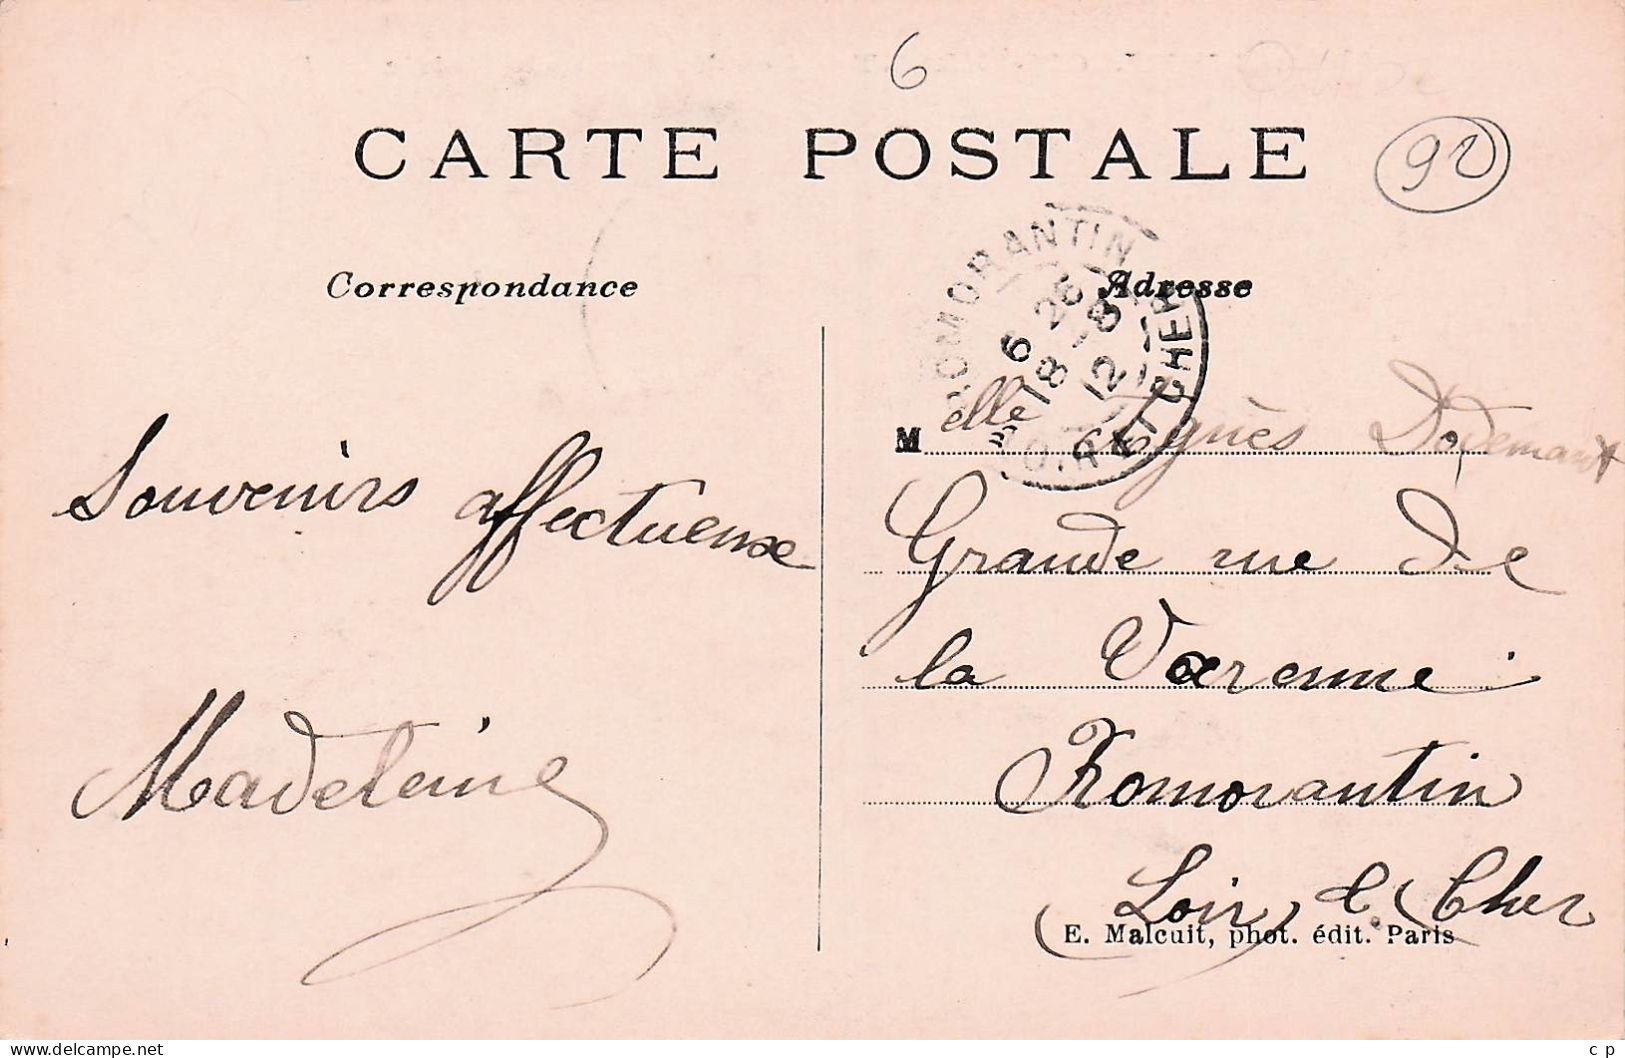 6
CARTE POSTALE
92
Correspondance
Adresse
ROMORANTIN
6 28
18 - 8
12
LOIR ET CHER
Melle Agnès
Souvenirs affectueuse
Grande rue de
la Varenne
Madeleine
Romorantin
Loir & Cher
E. Malcuit, phot. édit. Paris
c p